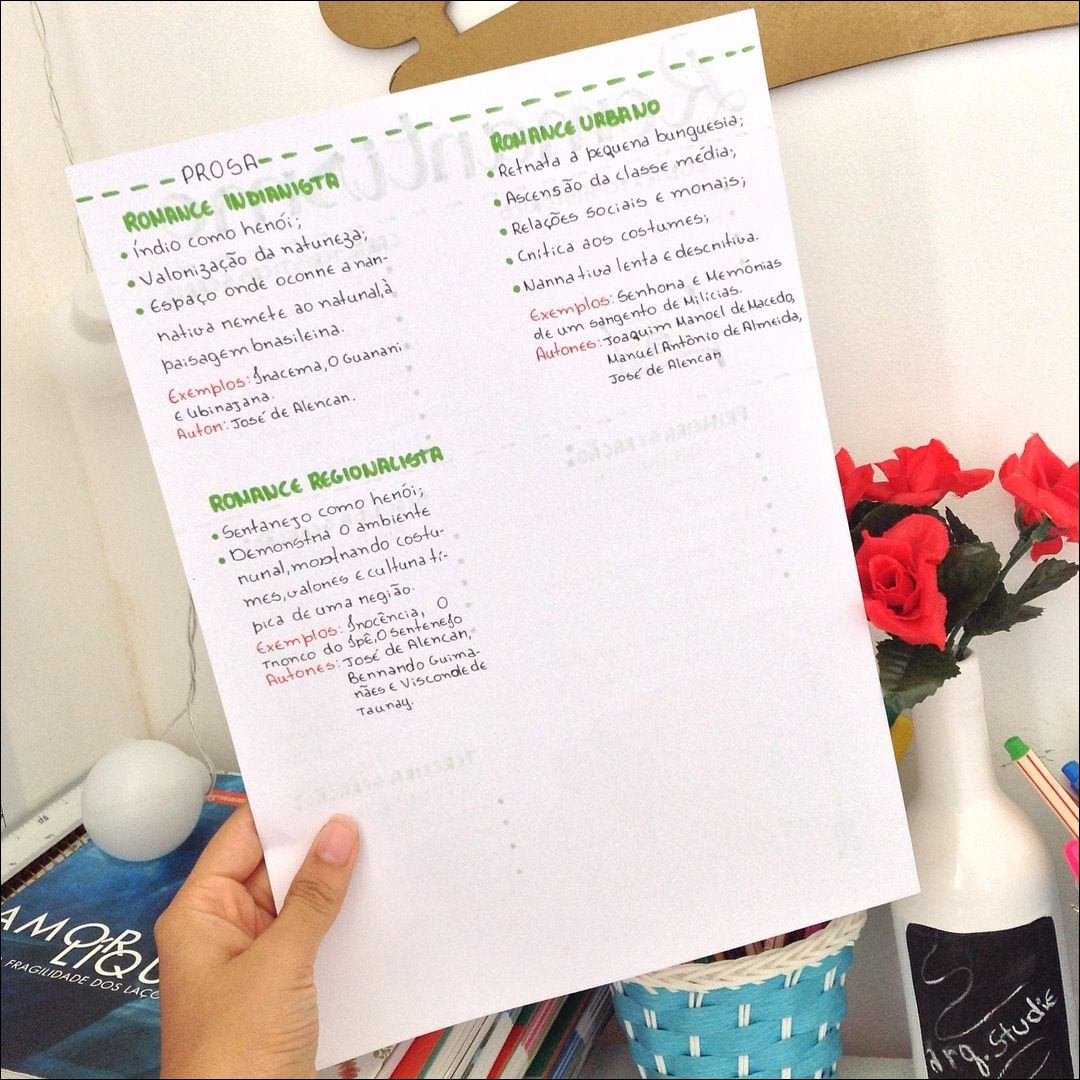 PROSA
ROMANCE INDIANISTA
• Índio como herói;
• Valorização da natureza;
• Espaço onde ocorre a nar-
rativa remete ao natural, à
paisagem brasileira.
Exemplos: Iracema, O Guarani
e Ubirajara.
Autor: José de Alencar.
ROMANCE REGIONALISTA
• Sertanejo como herói;
• Demonstra o ambiente
rural, mostrando costu-
mes, valores e cultura tí-
pica de uma região.
Exemplos: Inocência, O
Tronco do Ipê, O Sertenejo
Autores: José de Alencar,
Bernardo Guima-
rães e Visconde de
Taunay.
ROMANCE URBANO
• Retrata a pequena burguesia;
• Ascensão da classe média;
• Relações sociais e morais;
• Crítica aos costumes;
• Narrativa lenta e descritiva.
Exemplos: Senhora e Memórias
de um sargento de Milícias.
Autores: Joaquim Manoel de Macedo,
Manuel Antônio de Almeida,
José de Alencar
AMOR
LÍQU
FRAGILIDADE DOS LAÇO
arq.studie